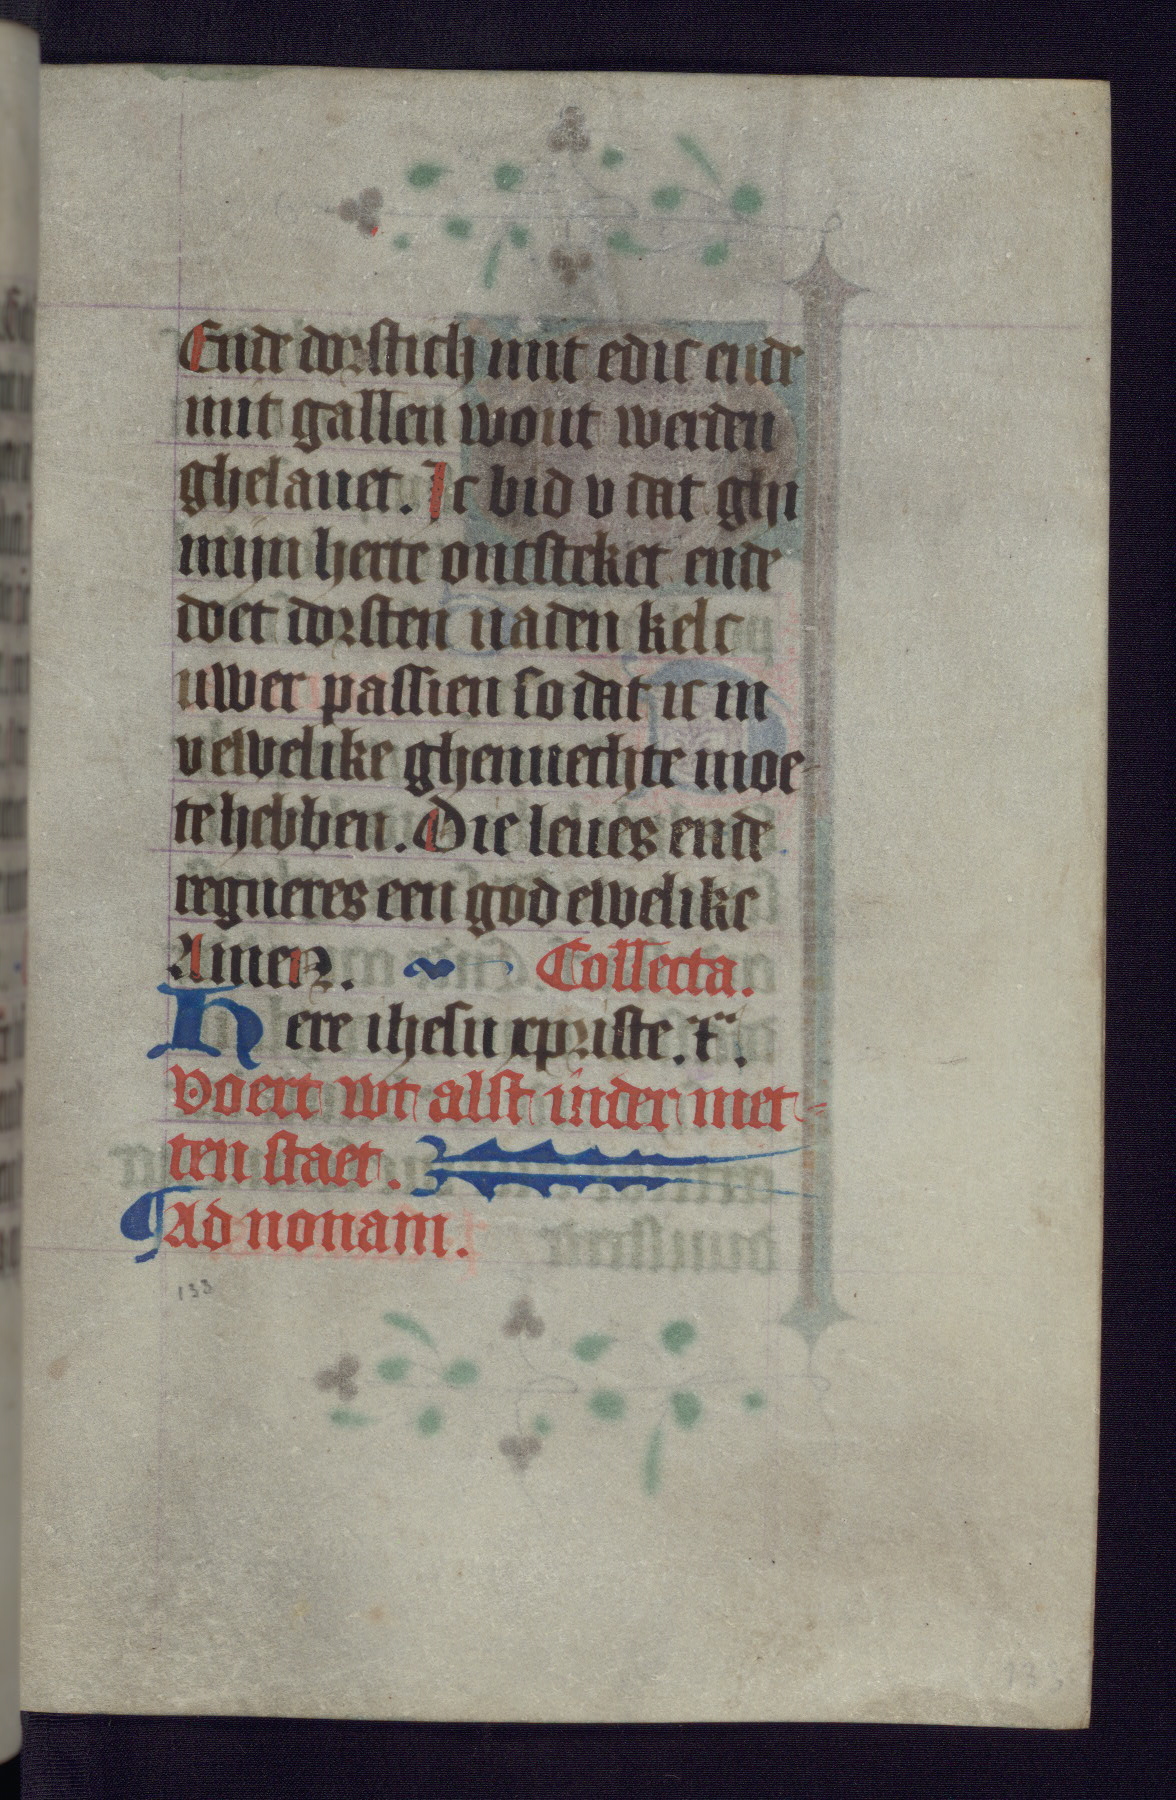 Ende dorstich mit edic ende
mit gallen wout werden
ghelauet. Ic bid v dat ghi
mijn herte ontsteket ende
doet dorsten naden kelc
uwer passien so dat ic in
v ewelike ghenuechte moe-
te hebben. Die leues ende
regneres een god ewelike
Amen. Collecta.
Here ihesu xpriste. r̄.
Voert wt alst inder met-
ten staet.
Ad nonam.
133